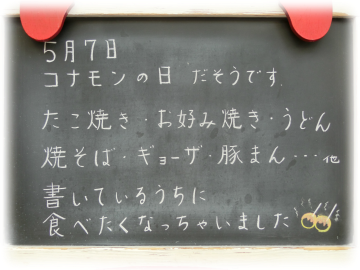 5月7日
コナモンの日 だそうです
たこ焼き・お好み焼き・うどん
焼そば・ギョーザ・豚まん・・・他
書いているうちに
食べたくなっちゃいました